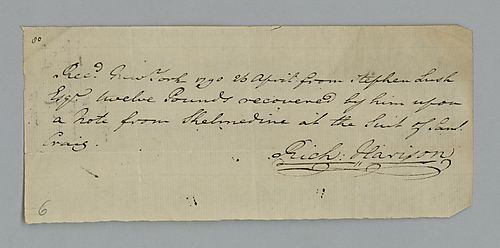 80
Rec.d New York 1790 26 April from Stephen Lush
Esq.r twelve Pounds recovered by him upon
a Note from Skelmedine at the Suit of Sam.l
Craig.
Rich: Harison
6